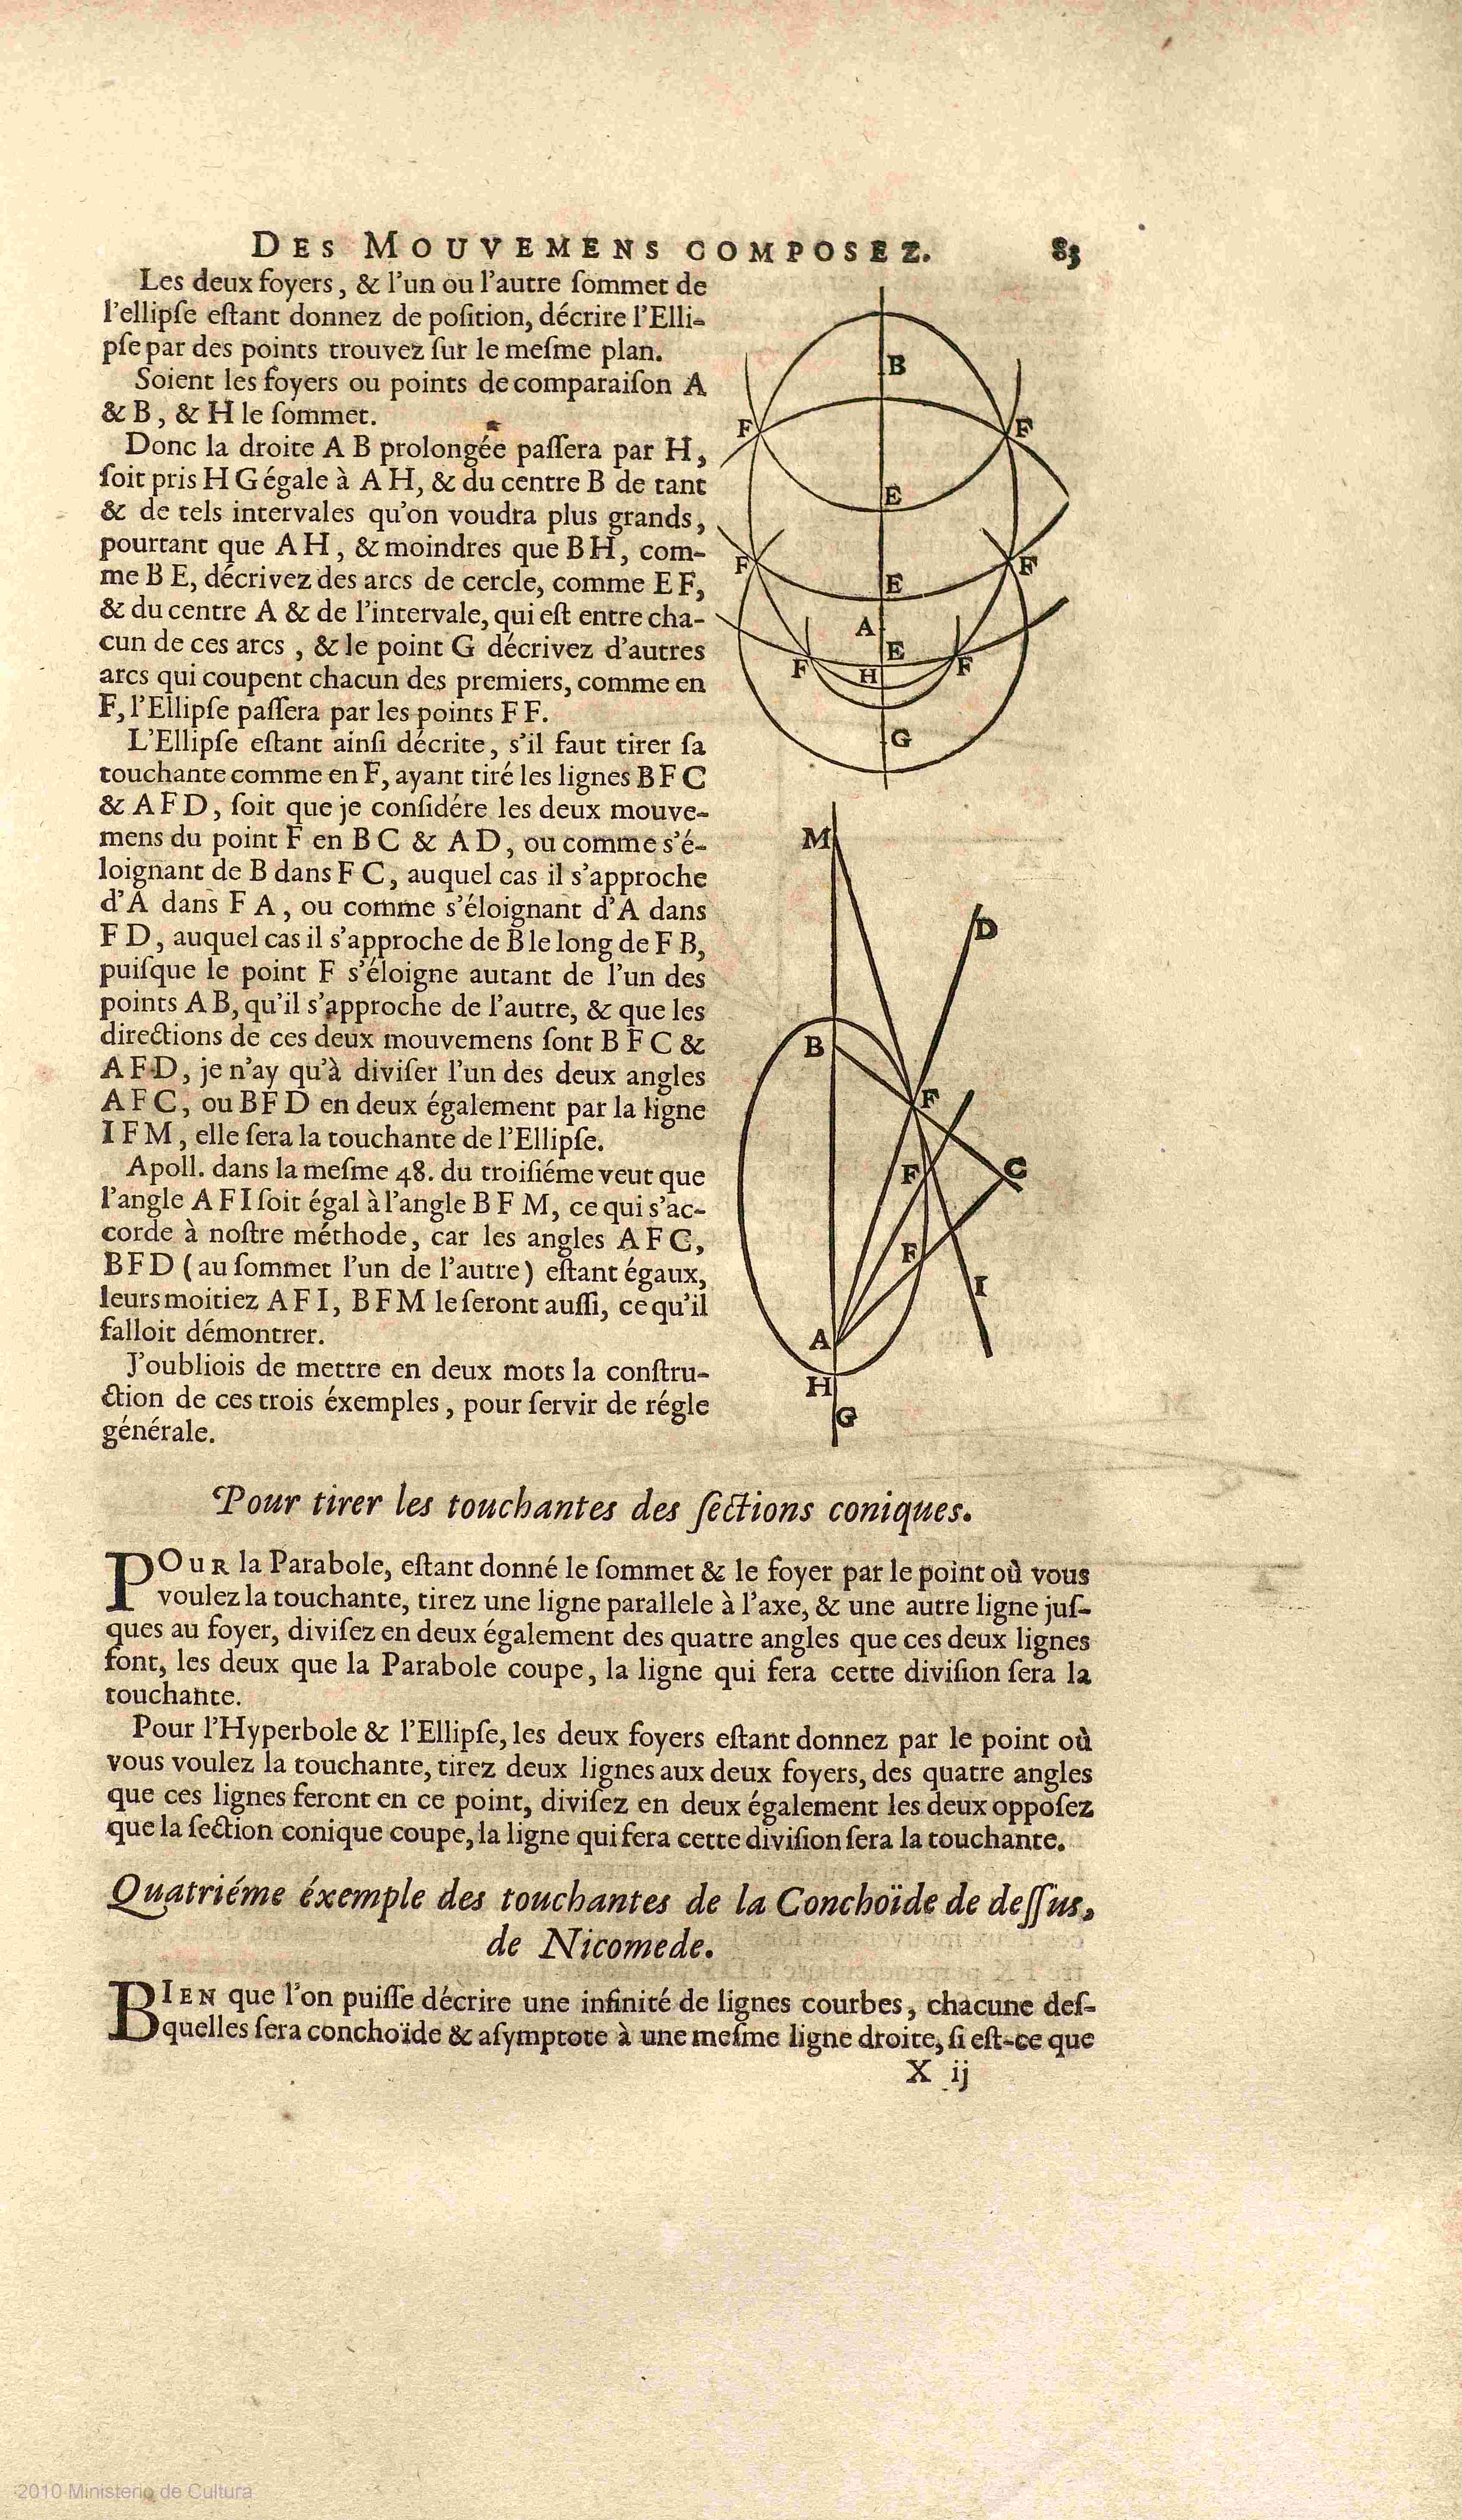 DES MOUVEMENS COMPOSEZ. 83
Les deux foyers, & l'un ou l'autre ſommet de
l'ellipſe eſtant donnez de poſition, décrire l'Elli-
pſe par des points trouvez ſur le meſme plan.
Soient les foyers ou points de comparaiſon A
& B, & H le ſommet.
Donc la droite A B prolongée paſſera par H,
ſoit pris H G égale à A H, & du centre B de tant
& de tels intervales qu'on voudra plus grands,
pourtant que A H, & moindres que B H, com-
me B E, décrivez des arcs de cercle, comme E F,
& du centre A & de l'intervale, qui eſt entre cha-
cun de ces arcs, & le point G décrivez d'autres
arcs qui coupent chacun des premiers, comme en
F, l'Ellipſe paſſera par les points F F.
L'Ellipſe eſtant ainſi décrite, s'il faut tirer ſa
touchante comme en F, ayant tiré les lignes B F C
& A F D, ſoit que je conſidére les deux mouve-
mens du point F en B C & A D, ou comme s'é-
loignant de B dans F C, auquel cas il s'approche
d'A dans F A, ou comme s'éloignant d'A dans
F D, auquel cas il s'approche de B le long de F B,
puiſque le point F s'éloigne autant de l'un des
points A B, qu'il s'approche de l'autre, & que les
directions de ces deux mouvemens ſont B F C &
A F D, je n'ay qu'à diviſer l'un des deux angles
A F C, ou B F D en deux également par la ligne
I F M, elle ſera la touchante de l'Ellipſe.
Apoll. dans la meſme 48. du troiſiéme veut que
l'angle A F I ſoit égal à l'angle B F M, ce qui s'ac-
corde à noſtre méthode, car les angles A F C,
B F D (au ſommet l'un de l'autre) eſtant égaux,
leurs moitiez A F I, B F M le ſeront auſſi, ce qu'il
falloit démontrer.
J'oubliois de mettre en deux mots la conſtru-
ction de ces trois éxemples, pour ſervir de régle
générale.
B
F F
E
F F
E
A
E
F H F
G
M
D
B
F
F C
F
I
A
H
G
Pour tirer les touchantes des ſections coniques.
POUR la Parabole, eſtant donné le ſommet & le foyer par le point où vous
voulez la touchante, tirez une ligne parallele à l'axe, & une autre ligne juſ-
ques au foyer, diviſez en deux également des quatre angles que ces deux lignes
font, les deux que la Parabole coupe, la ligne qui fera cette diviſion ſera la
touchante.
Pour l'Hyperbole & l'Ellipſe, les deux foyers eſtant donnez par le point où
vous voulez la touchante, tirez deux lignes aux deux foyers, des quatre angles
que ces lignes feront en ce point, diviſez en deux également les deux oppoſez
que la ſection conique coupe, la ligne qui fera cette diviſion ſera la touchante.
Quatriéme éxemple des touchantes de la Conchoïde de deſſus,
de Nicomede.
BIEN que l'on puiſſe décrire une infinité de lignes courbes, chacune deſ-
quelles ſera conchoïde & aſymptote à une meſme ligne droite, ſi eſt-ce que
X ij
2010 Ministerio de Cultura